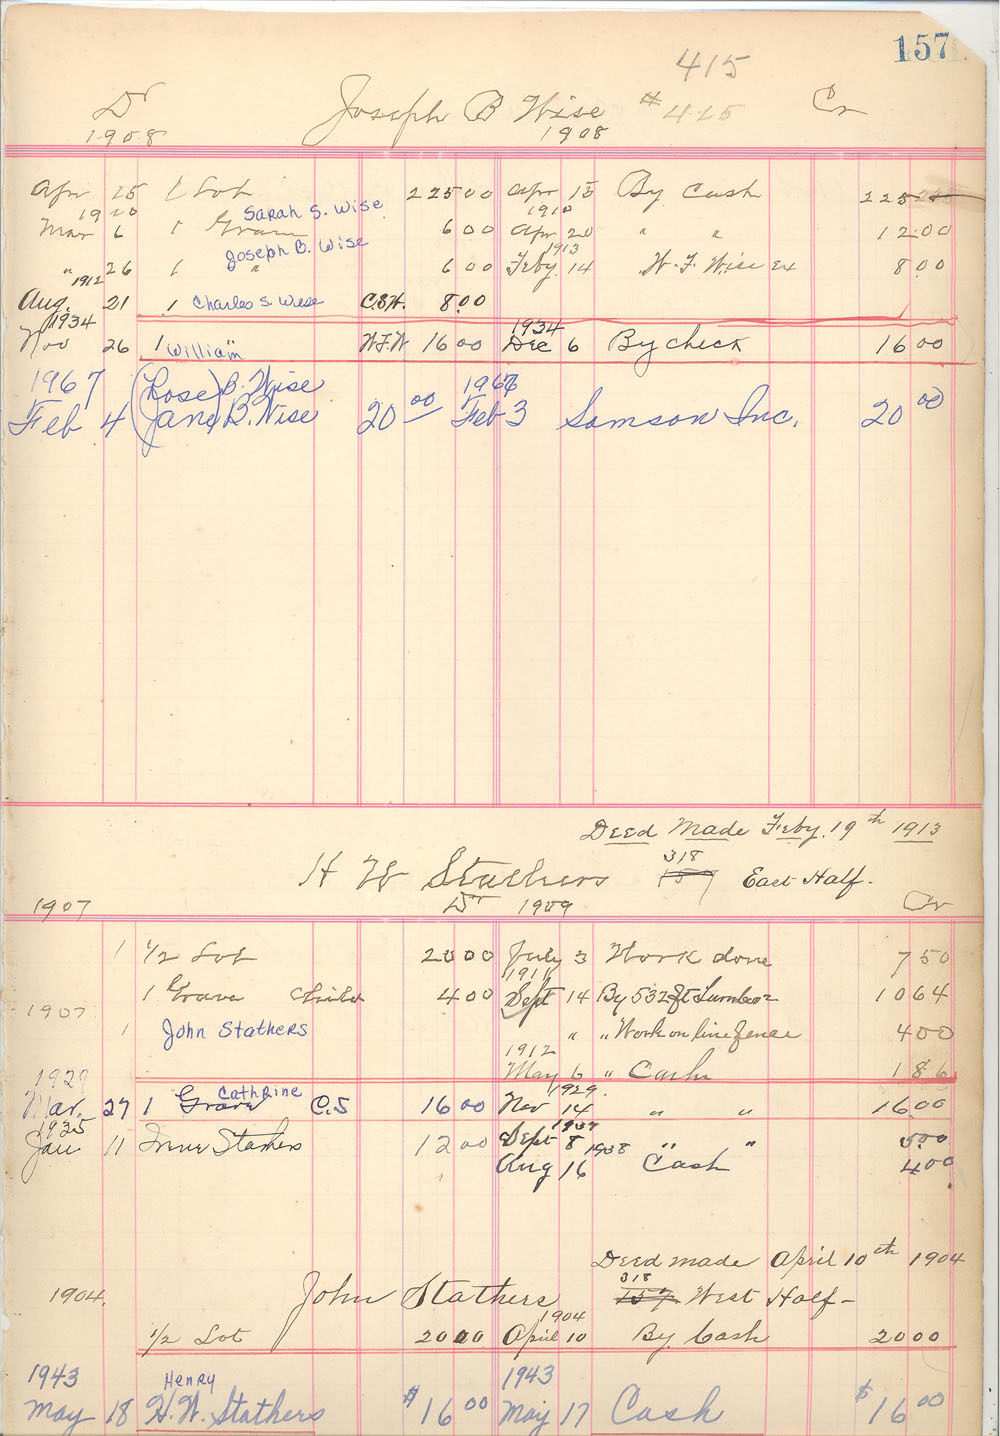 157
415
Dr Joseph B Wise # 415 Cr
1908 1908
Apr 25 1 Lot 225 00 Apr 15 By Cash 225
1910 Sarah S. Wise 1910
Mar 6 1 Grave 6 00 Apr 20 " " 12 00
Joseph B. Wise 1913
" 26 1 " 6 00 Feby 14 W. F. Wise Ex 8 00
1912
Aug. 21 1 Charles S. Wise C.S.W. 8 00
1934 1934
Nov 26 1 William W.F.W 16 00 Dec 6 By check 16 00
1967 (Rose) B. Wise 1967
Feb 4 (Jane) B. Wise 20 00 Feb 3 Samson Inc. 20 00
Deed Made Feby. 19th 1913
318
H W Stathers 157 East Half.
1907 Dr 1909 Cr
1 1/2 Lot 20 00 July 3 Work done 7 50
1911
1 Grave Child 4 00 Sept 14 By 532 ft Lumber 10 64
1907
1 John Stathers " " Work on line fence 4 00
1912
May 6 " Cash 1 86
1929 Cathrine 1929
Mar. 27 1 Grave C.S 16 00 Nov 14 " " 16 00
1935 1937
Jan 11 Irene Stathers 12 00 Sept 8 " " 5 00
1938
Aug 16 Cash 4 00
Deed made April 10th 1904
318
1904. John Stathers 157 West Half-
1904
1/2 Lot 20 00 April 10 By Cash 20 00
1943 Henry 1943
May 18 H. W. Stathers $16 00 May 17 Cash $16 00